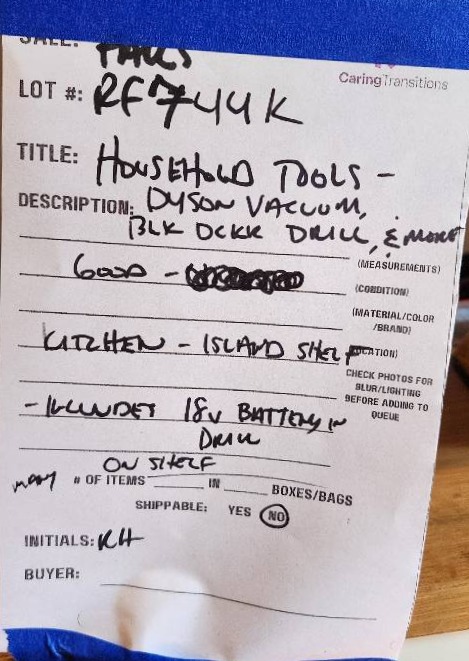 SALE: PARKS
CaringTransitions
LOT #: RF744K
TITLE: HOUSEHOLD TOOLS -
DESCRIPTION: DYSON VACUUM,
BLK DCKR DRILL, & MORE
(MEASUREMENTS)
GOOD -
(CONDITION)
(MATERIAL/COLOR
/BRAND)
KITCHEN - ISLAND SHELF
(LOCATION)
CHECK PHOTOS FOR
BLUR/LIGHTING
BEFORE ADDING TO
QUEUE
- INCLUDES 18V BATTERY IN
DRILL
ON SHELF
MANY # OF ITEMS IN BOXES/BAGS
SHIPPABLE: YES NO
INITIALS: RH
BUYER: